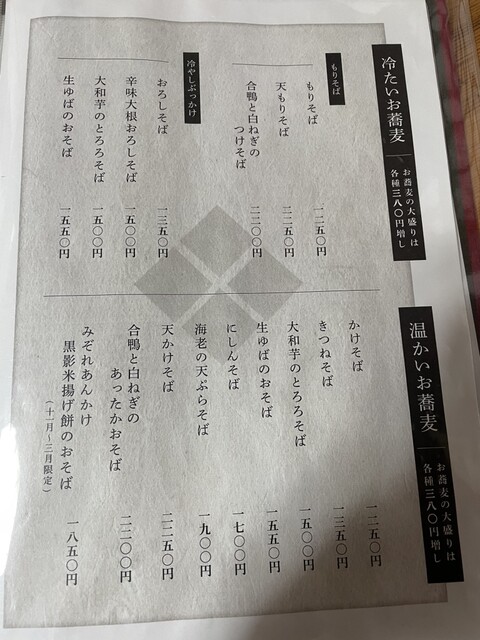 冷たいお蕎麦
お蕎麦の大盛りは
各種三八〇円増し
もりそば
もりそば 一二五〇円
天もりそば 二二五〇円
合鴨と白ねぎの
つけそば 二二〇〇円
冷やしぶっかけ
おろしそば 一三五〇円
辛味大根おろしそば 一五五〇円
大和芋のとろろそば 一五〇〇円
生ゆばのおそば 一五五〇円
温かいお蕎麦
お蕎麦の大盛りは
各種三八〇円増し
かけそば 一二五〇円
きつねそば 一三五〇円
大和芋のとろろそば 一五〇〇円
生ゆばのおそば 一五五〇円
にしんそば 一七〇〇円
海老の天ぷらそば 一九〇〇円
天かけそば 二二五〇円
合鴨と白ねぎの
あったかおそば 二二〇〇円
みぞれあんかけ
黒影米揚げ餅のおそば 一八五〇円
（十一月〜三月限定）